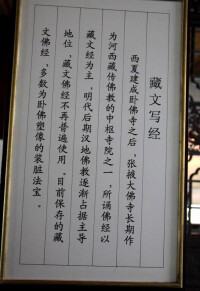 藏文写经
西夏建成卧佛寺之后，张掖大佛寺长期作
为河西藏传佛教的中枢寺院之一，所诵佛经以
藏文经为主，明代后期汉地佛教逐渐占据主导
地位，藏文佛经不再普遍使用。目前保存的藏
文佛经，多数为卧佛塑像的装脏法宝。